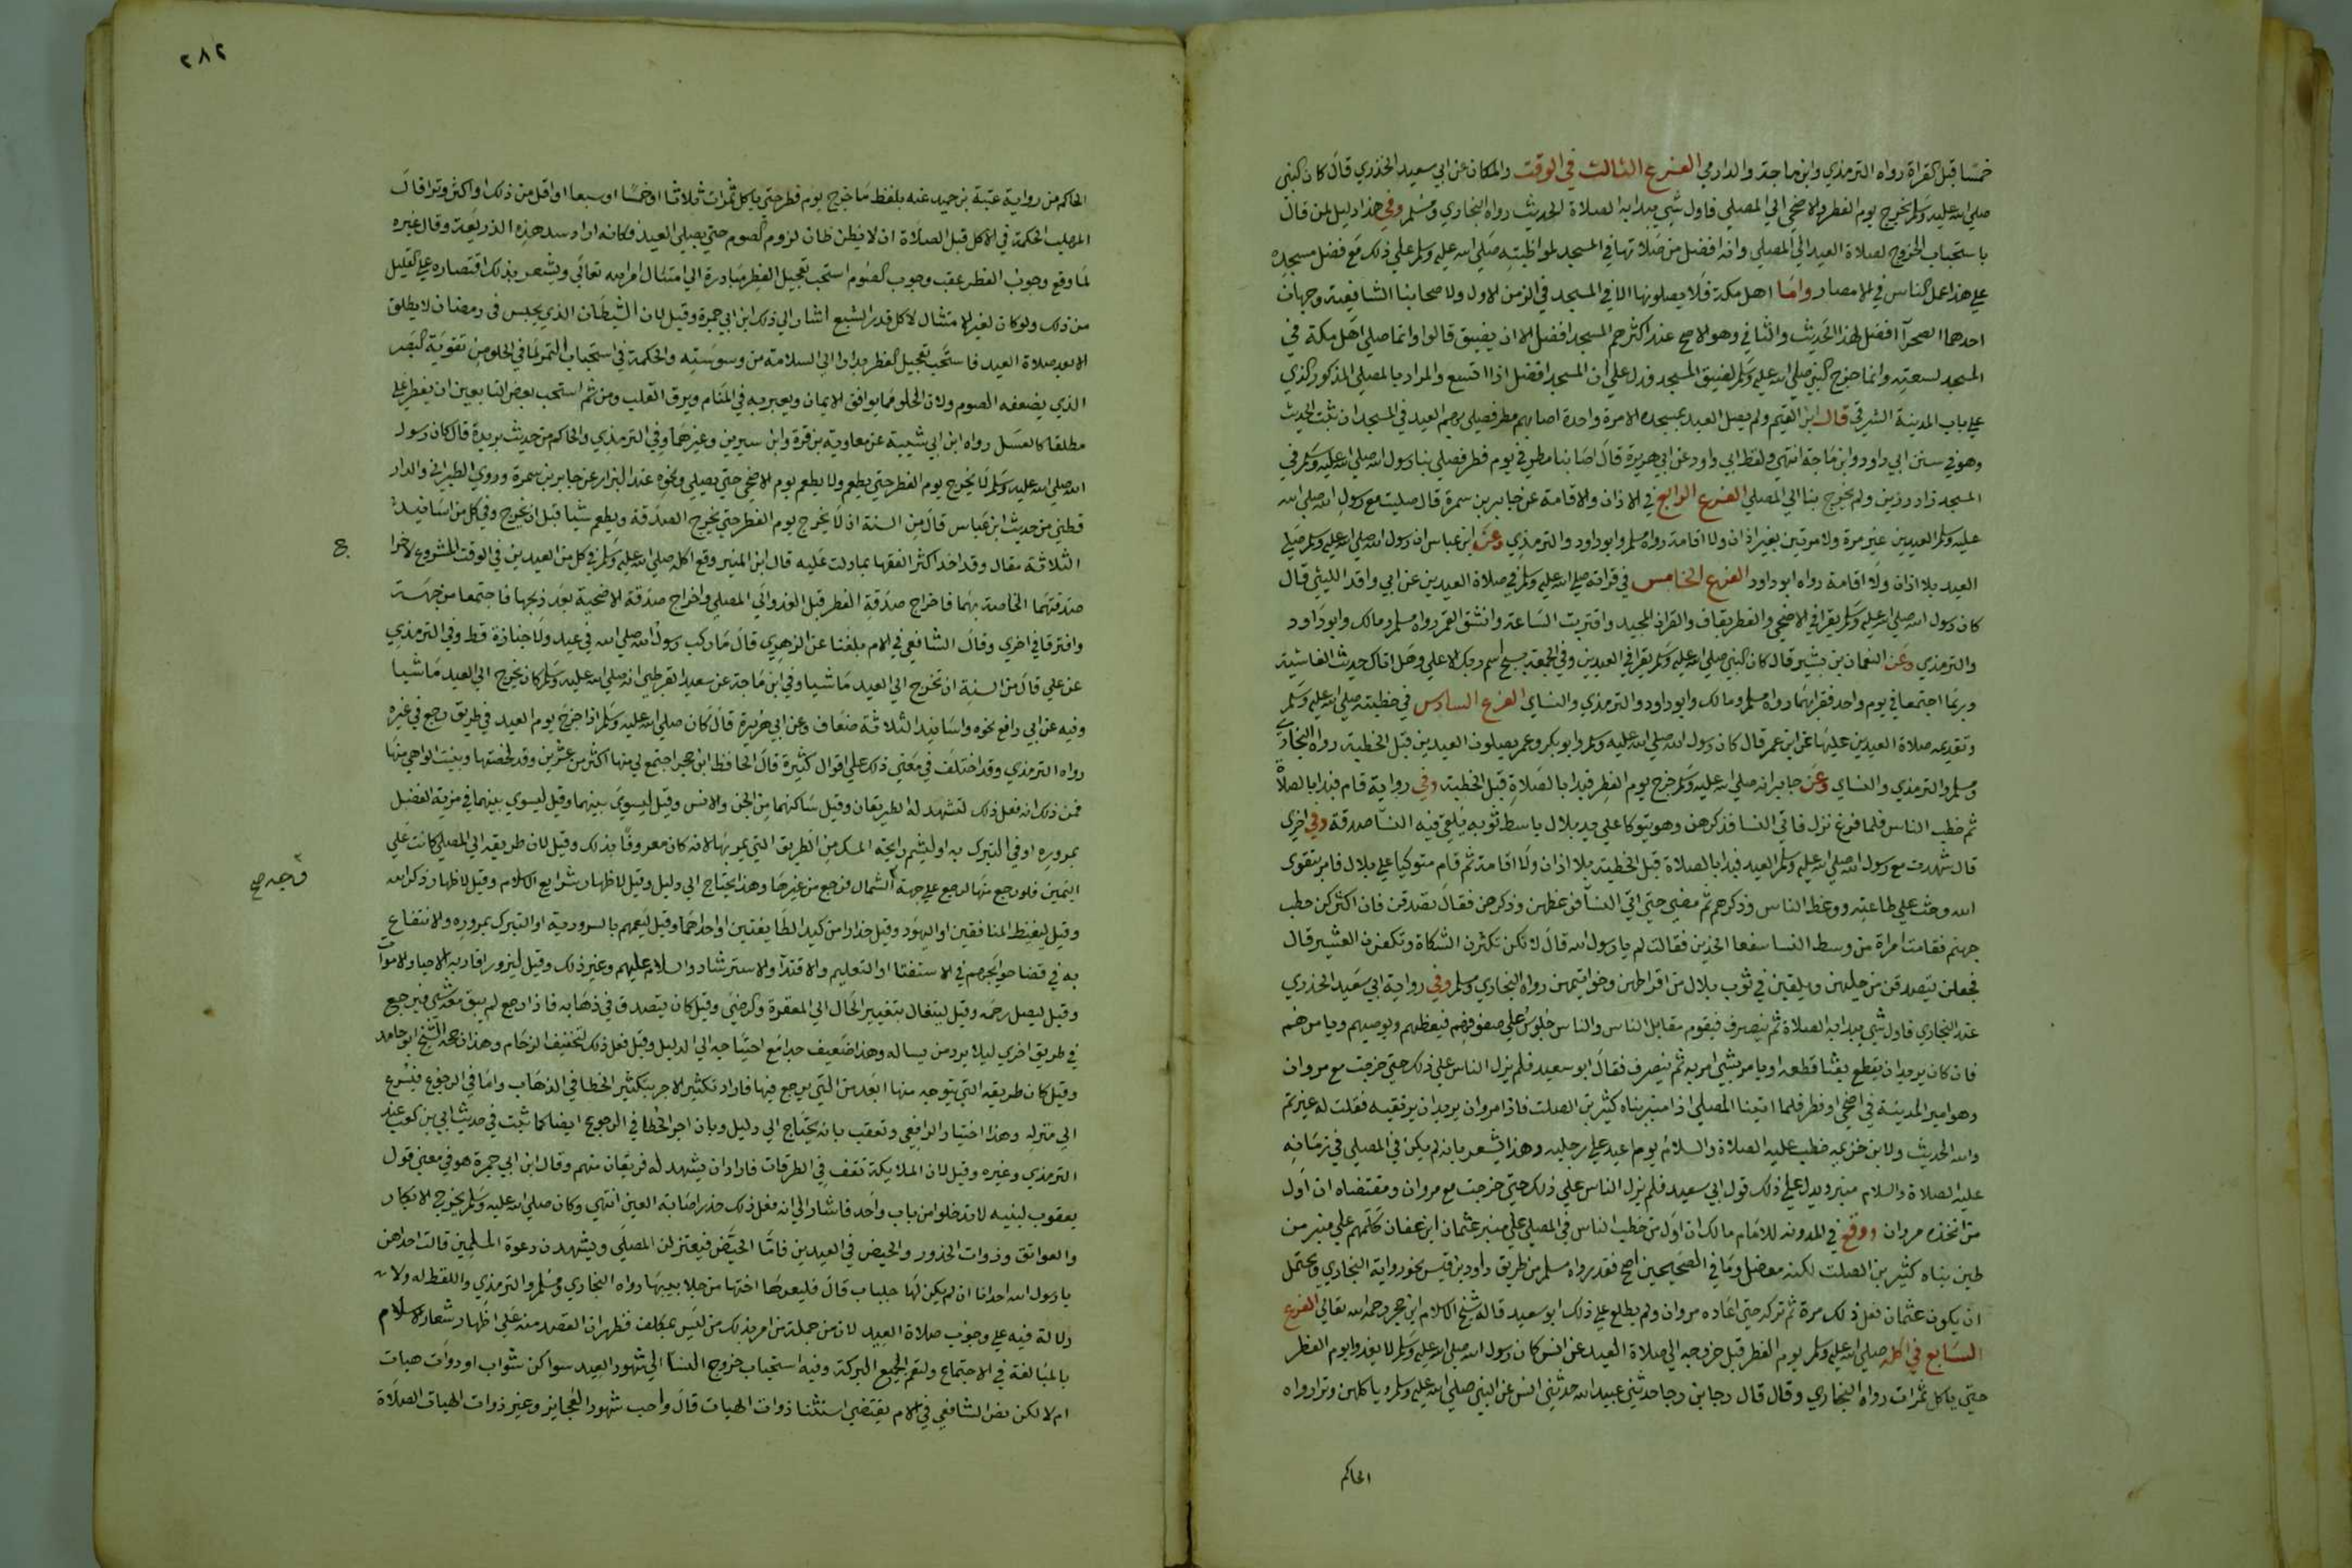 خمسا قبل القراة رواه الترمذي وابن ماجة والدارمي الفرع الثالث في الوقت والمكان عن ابي سعيد الخذري قال كان النبي
صلي الله عليه وسلم يخرج يوم الفطر والاضحي الي المصلي فاول شيي يبدا به الصلاة الحديث رواه البخاري ومسلم وفي هذا دليل لمن قال
باستحباب الخروج لصلاة العيد الي المصلي وانه افضل من صلاتها في المسجد لمواظبته صلي الله عليه وسلم علي ذلك مع فضل مسجده
علي هذا عمل الناس في الامصار واما اهل مكة فلا يصلونها الا في المسجد في الزمن الاول ولاصحابنا الشافعية وجهان
احدهما الصحرآ افضل لهذا الحديث والثاني وهو الاصح عند اكثرهم المسجد افضل الا ان يضيق قالوا وانما صلي اهل مكة في
المسجد لسعته وانما خرج النبي صلي الله عليه وسلم لضيق المسجد فدل علي ان المسجد افضل اذا اتسع والمراد بالمصلي المذكور الذي
علي باب المدينة الشرقي قال ابن القيم ولم يصل العيد بمسجده الا مرة واحدة اصابهم مطر فصلي بهم العيد في المسجد ان ثبت الحديث
وهو في سنن ابي داود وابن ماجة انتهي ولفظ ابي داود عن ابي هريرة قال اصابنا مطر في يوم فطر فصلي بنا رسول الله صلي الله عليه وسلم في
المسجد زاد رزين ولم يخرج بنا الي المصلي الفرع الرابع في الاذان والاقامة عن جابر بن سمرة قال صليت مع رسول الله صلي الله
عليه وسلم العيدين غير مرة ولا مرتين بغير اذان ولا اقامة رواه مسلم وابو داود والترمذي وعن ابن عباس ان رسول الله صلي الله عليه وسلم صلي
العيد بلا اذان ولا اقامة رواه ابو داود الفرع الخامس في قراته صلي الله عليه وسلم في صلاة العيدين عن ابي واقد الليثي قال
كان رسول الله صلي الله عليه وسلم يقرا في الاضحي والفطر بقاف والقران المجيد واقتربت الساعة وانشق القمر رواه مسلم ومالك وابو داود
والترمذي وعن النعمان بن بشير قال كان النبي صلي الله عليه وسلم يقرا في العيدين وفي الجمعة بسبح اسم ربك الاعلي وهل اتاك حديث الغاشية
وربما اجتمعا في يوم واحد فقرا بهما رواه مسلم ومالك وابو داود والترمذي والنساي الفرع السادس في خطبته صلي الله عليه وسلم
وتقديمه صلاة العيدين عليها عن ابن عمر قال كان رسول الله صلي الله عليه وسلم وابو بكر وعمر يصلون العيدين قبل الخطبة رواه البخاري
ومسلم والترمذي والنساي وعن جابر انه صلي الله عليه وسلم خرج يوم الفطر فبدا بالصلاة قبل الخطبة وفي رواية قام فبدا بالصلاة
ثم خطب الناس فلما فرغ نزل فاتي النسا فذكرهن وهو يتوكا علي يد بلال باسط ثوبه يلقي فيه النسآ صدقة وفي اخري
قال شهدت مع رسول الله صلي الله عليه وسلم العيد فبدا بالصلاة قبل الخطبة بلا اذان ولا اقامة ثم قام متوكيا علي بلال فامر بتقوي
الله وحث علي طاعته ووعظ الناس وذكرهم ثم مضي حتي اتي النسآ فوعظهن وذكرهن فقال تصدقن فان اكثركن حطب
جهنم فقامت امراة من وسط النسا سفعا الخدين فقالت لم يا رسول الله قال لانكن تكثرن الشكاة وتكفرن العشير قال
فجعلن يتصدقن من حليهن ويلقين في ثوب بلال من اقراطهن وخواتيمهن رواه البخاري ومسلم وفي رواية ابي سعيد الخذري
عند البخاري فاول شي يبدا به الصلاة ثم ينصرف فيقوم مقابل الناس والناس جلوس علي صفوفهم فيعظهم ويوصيهم ويامرهم
فان كان يريد ان يقطع بعثا قطعه او يامر بشيي امر به ثم ينصرف فقال ابو سعيد فلم يزل الناس علي ذلك حتي خرجت مع مروان
وهو امير المدينة في اضحي او فطر فلما اتينا المصلي اذا منبر بناه كثير بن الصلت فاذا مروان يريد ان يرتقيه فقلت له غيرتم
والله الحديث ولابن خزيمه خطب عليه الصلاة والسلام يوم عيد علي رجليه وهذا يشعر بانه لم يكن في المصلي في زمانه
عليه الصلاة والسلام منبر ويدل علي ذلك قول ابي سعيد فلم يزل الناس علي ذلك حتي خرجت مع مروان ومقتضاه ان اول
من اتخذه مروان ووقع في المدونه للامام مالك ان اول من خطب الناس في المصلي علي منبر عثمان ابن عفان كلمهم علي منبر من
طين بناه كثير بن الصلت لكنه معضل وما في الصحيحين اصح فقد رواه مسلم من طريق داود بن قيس نحو رواية البخاري ويحتمل
ان يكون عثمان فعل ذلك مرة ثم تركه حتي اعاده مروان ولم يطلع علي ذلك ابو سعيد قاله شيخ الاسلام ابن حجر رحمه الله تعالي الفرع
السابع في اكله صلي الله عليه وسلم يوم الفطر قبل خروجه الي صلاة العيد عن انس كان رسول الله صلي الله عليه وسلم لا يغدو يوم الفطر
حتي ياكل تمرات رواه البخاري وقال قال رجا بن رجا حدثني عبيد الله حدثني انس عن النبي صلي الله عليه وسلم وياكلهن وترا رواه
الحاكم
٢٨٢
الحاكم من رواية عتبة بن حميد عنه بلفظ ما خرج يوم فطر حتي ياكل تمرات ثلاثا او خمسا او سبعا او اقل من ذلك او اكثر وترا قال
المهلب الحكمة في الاكل قبل الصلاة ان لا يظن ظان لزوم الصوم حتي يصلي العيد فكانه اراد سد هذه الذريعة وقال غيره
لما وقع وجوب الفطر عقب وجوب الصوم استحب تعجيل الفطر مبادرة الي امتثال امر الله تعالي ويشعر بذلك اقتصاره علي القليل
من ذلك ولو كان لغير الامتثال لاكل قدر الشبع اشار الي ذلك ابن ابي جمرة وقيل لان الشيطان الذي يحبس في رمضان لا يطلق
الا بعد صلاة العيد فاستحب تعجيل الفطر بدارا الي السلامة من وسوسته والحكمة في استحباب التمر لما في الحلو من تقوية البصر
الذي يضعفه الصوم ولان الحلو مما يوافق الايمان ويعبر به في المنام ويرق القلب ومن ثم استحب بعض التابعين ان يفطر علي
مطلقا كالعسل رواه ابن ابي شيبة عن معاوية بن قرة وابن سيرين وغيرهما وفي الترمذي والحاكم من حديث بريدة قال كان رسول
الله صلي الله عليه وسلم لا يخرج يوم الفطر حتي يطعم ولا يطعم يوم الاضحي حتي يصلي ونحوه عند البزار عن جابر بن سمرة وروي الطبراني والدار
قطني من حديث ابن عباس قال من السنة ان لا يخرج يوم الفطر حتي يخرج الصدقة ويطعم شيا قبل ان يخرج وفي كل من اسانيد
الثلاثة مقال وقد اخذ اكثر الفقها بما دلت عليه قال ابن المنير وقع اكله صلي الله عليه وسلم في كل من العيدين في الوقت المشروع لاخراج
صدقتهما الخاصة بهما فاخراج صدقة الفطر قبل الغدو الي المصلي واخراج صدقة الاضحية بعد ذبحها فاجتمعا من جهة
وافترقا في اخري وقال الشافعي في الام بلغنا عن الزهري قال ما ركب رسول الله صلي الله في عيد ولا جنازة قط وفي الترمذي
عن علي قال من السنة ان تخرج الي العيد ماشيا وفي ابن ماجة عن سعيد القرظي انه صلي الله عليه وسلم كان يخرج الي العيد ماشيا
وفيه عن ابي رافع نحوه واسانيد الثلاثة ضعاف وعن ابي هريرة قال كان صلي الله عليه وسلم اذا خرج يوم العيد في طريق رجع في غيره
رواه الترمذي وقد اختلف في معني ذلك علي اقوال كثيرة قال الحافظ ابن حجر اجتمع لي منها اكثر من عشرين وقد لخصتها وبينت الواهي منها
فمن ذلك انه فعل ذلك لتشهد له الطريقان وقيل ساكنهما من الجن والانس وقيل ليسوي بينهما وقيل ليسوي بينهما في مزية الفضل
بمروره او في التبرك به او ليشم رايحة المسك من الطريق التي يمر بها لانه كان معروفا بذلك وقيل لان طريقه الي المصلي كانت علي
اليمين فلو رجع منها لرجع علي جهة الشمال فرجع من غيرها وهذا يحتاج الي دليل وقيل لاظهار شرايع الاسلام وقيل لاظهار ذكر الله
وقيل ليغيظ المنافقين او اليهود وقيل حذرا من كيد الطايفتين او احداهما وقيل ليعمهم بالسرور به او التبرك بمروره والانتفاع
به في قضا حوايجهم في الاستفتا او التعليم والاقتدآ والاسترشاد والسلام عليهم وغير ذلك وقيل ليزور اقاربه الاحيا والاموات
وقيل ليصل رحمه وقيل ليتفال بتغيير الحال الي المغفرة والرضي وقيل كان يتصدق في ذهابه فاذا رجع لم يبق معه شي فيرجع
في طريق اخري ليلا يرد من يساله وهذا ضعيف جدا مع احتياجه الي الدليل وقيل فعل ذلك لتخفيف الزحام وهذا رجحه الشيخ ابو حامد
وقيل كان طريقه التي يتوجه منها ابعد من التي يرجع فيها فاراد تكثير الاجر بتكثير الخطا في الذهاب واما في الرجوع فيسرع
الي منزله وهذا اختيار الرافعي وتعقب بانه يحتاج الي دليل وبان اجر الخطا في الرجوع ايضا كما ثبت في حديث ابي بن كعب عند
الترمذي وغيره وقيل لان الملايكة تقف في الطرقات فاراد ان يشهد له فريقان منهم وقال ابن ابي جمرة هو في معني قول
يعقوب لبنيه لا تدخلوا من باب واحد فاشار الي انه فعل ذلك حذر اصابة العين انتهي وكان صلي الله عليه وسلم يخرج الابكار
والعواتق وذوات الخدور والحيض في العيدين فاما الحيض فيعتزلن المصلي ويشهدن دعوة المسلمين قالت احداهن
يا رسول الله احدانا ان لم يكن لها جلباب قال فليعرها اختها من جلابيبها رواه البخاري ومسلم والترمذي واللفظ له ولا
دلالة فيه علي وجوب صلاة العيد لان من جملة من امر بذلك من ليس بمكلف فظهر ان القصد منه علي اظهار شعار الاسلام
بالمبالغة في الاجتماع ولتعم الجميع البركة وفيه استحباب خروج النسا الي شهود العيد سوا كن شواب او ذوات هيات
ام لا لكن نص الشافعي في الام يقتضي استثنا ذوات الهيات قال واحب شهود العجايز وغير ذوات الهيات الصلاة